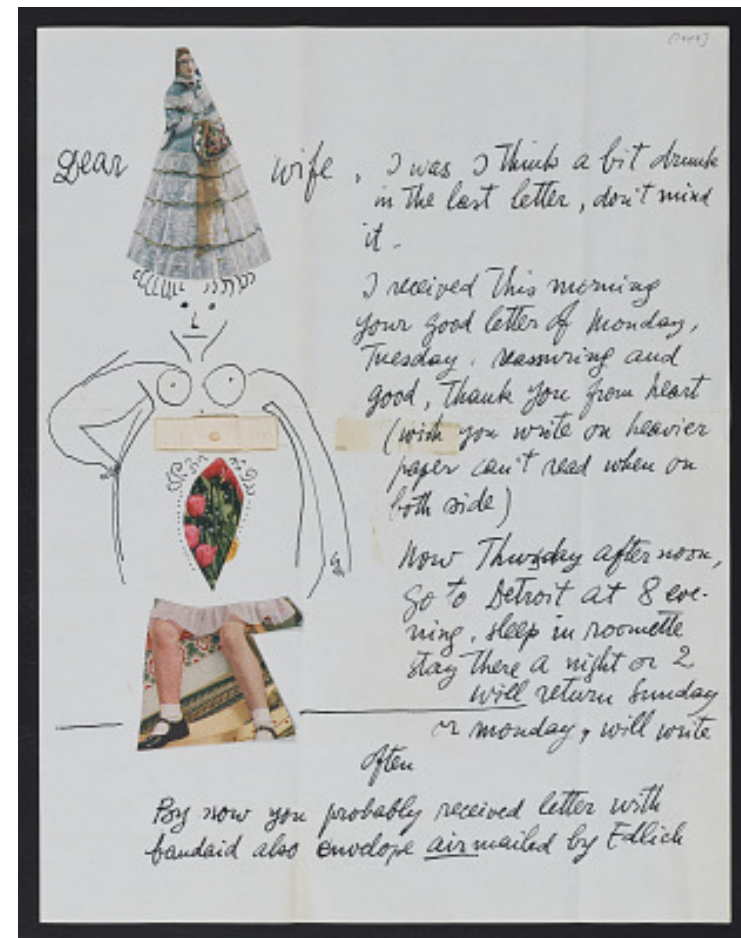 Dear wife, I was I think a bit drunk
in the last letter, don't mind
it.
I received this morning
your good letter of Monday,
Tuesday. reassuring and
good, thank you from heart
(wish you write on heavier
paper can't read when on
both side)
Now Thursday afternoon,
go to Detroit at 8 eve-
ning, sleep in roomette
stay there a night or 2
will return Sunday
or monday, will write
often
By now you probably received letter with
bandaid also envelope airmailed by Edlich